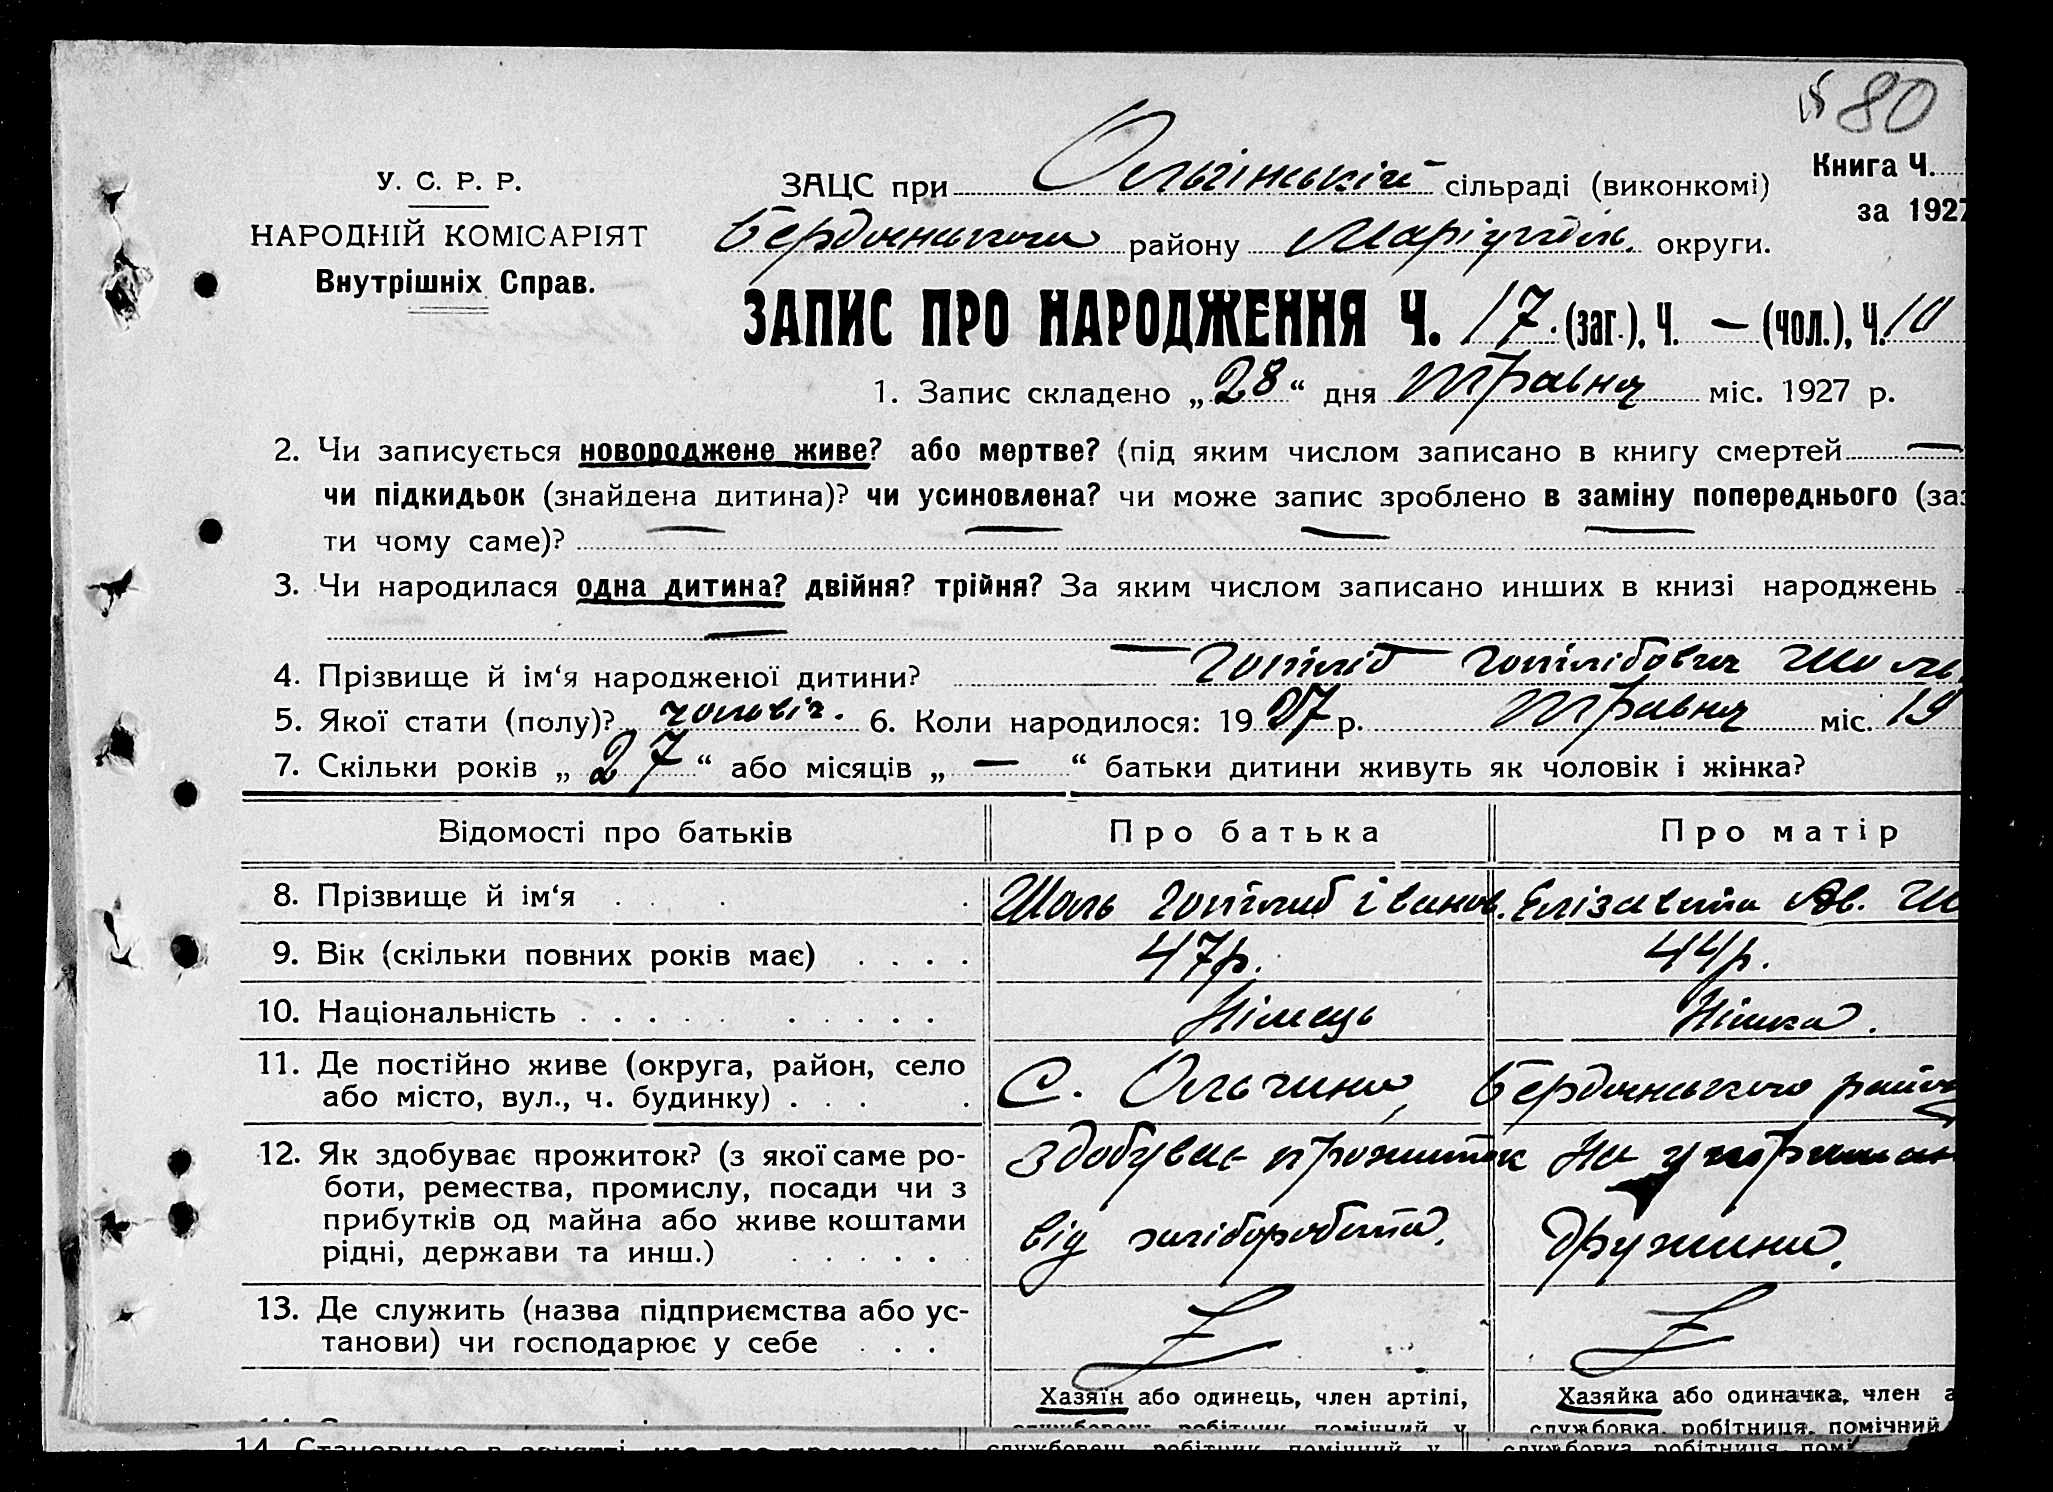 80
У. С. Р. Р.
НАРОДНІЙ КОМІСАРІЯТ
Внутрішніх Справ.
ЗАЦС при Ольгінській сільраді (виконкомі)
Книга Ч.
за 1927
Бердянського району Маріупіль. округи.
ЗАПИС ПРО НАРОДЖЕННЯ Ч. 17 (заг.), Ч. — (чол.), Ч. 10
1. Запис складено „28“ дня травня міс. 1927 р.
2. Чи записується новороджене живе? або мертве? (під яким числом записано в книгу смертей —
чи підкидьок (знайдена дитина)? чи усиновлена? чи може запис зроблено в заміну попереднього (за
ти чому саме)? — — — —
3. Чи народилася одна дитина? двійня? трійня? За яким числом записано инших в книзі народжень
—
4. Прізвище й ім‘я народженої дитини? — Готліб Готлібович Шоль
5. Якої стати (полу)? чоловіч. 6. Коли народилося: 1927 р. травня міс. 19
7. Скільки років „27“ або місяців „—“ батьки дитини живуть як чоловік і жінка?
Відомості про батьків Про батька Про матір
8. Прізвище й ім‘я . . . . Шоль Готліб Іванов. Елізавета Ш
9. Вік (скільки повних років має) . . . . 47р. 44р.
10. Національність . . . . . . . . . . Німець Німка.
11. Де постійно живе (округа, район, село
або місто, вул., ч. будинку) . . . .
С. Ольгино Бердянського район
12. Як здобуває прожиток? (з якої саме ро-
боти, ремества, промислу, посади чи з
прибутків од майна або живе коштами
рідні, держави та инш.) . . . . .
здобуває прожиток
від хліборобства.
на
дружини.
13. Де служить (назва підприємства або ус-
танови) чи господарює у себе . . .
Хазяїн або одинець, член артілі,
Хазяйка або одиначка, член а
службовець робітник помічний у
службовка, робітниця, помічний
14.
службовець робітник помічний у
службовка робітниця помі